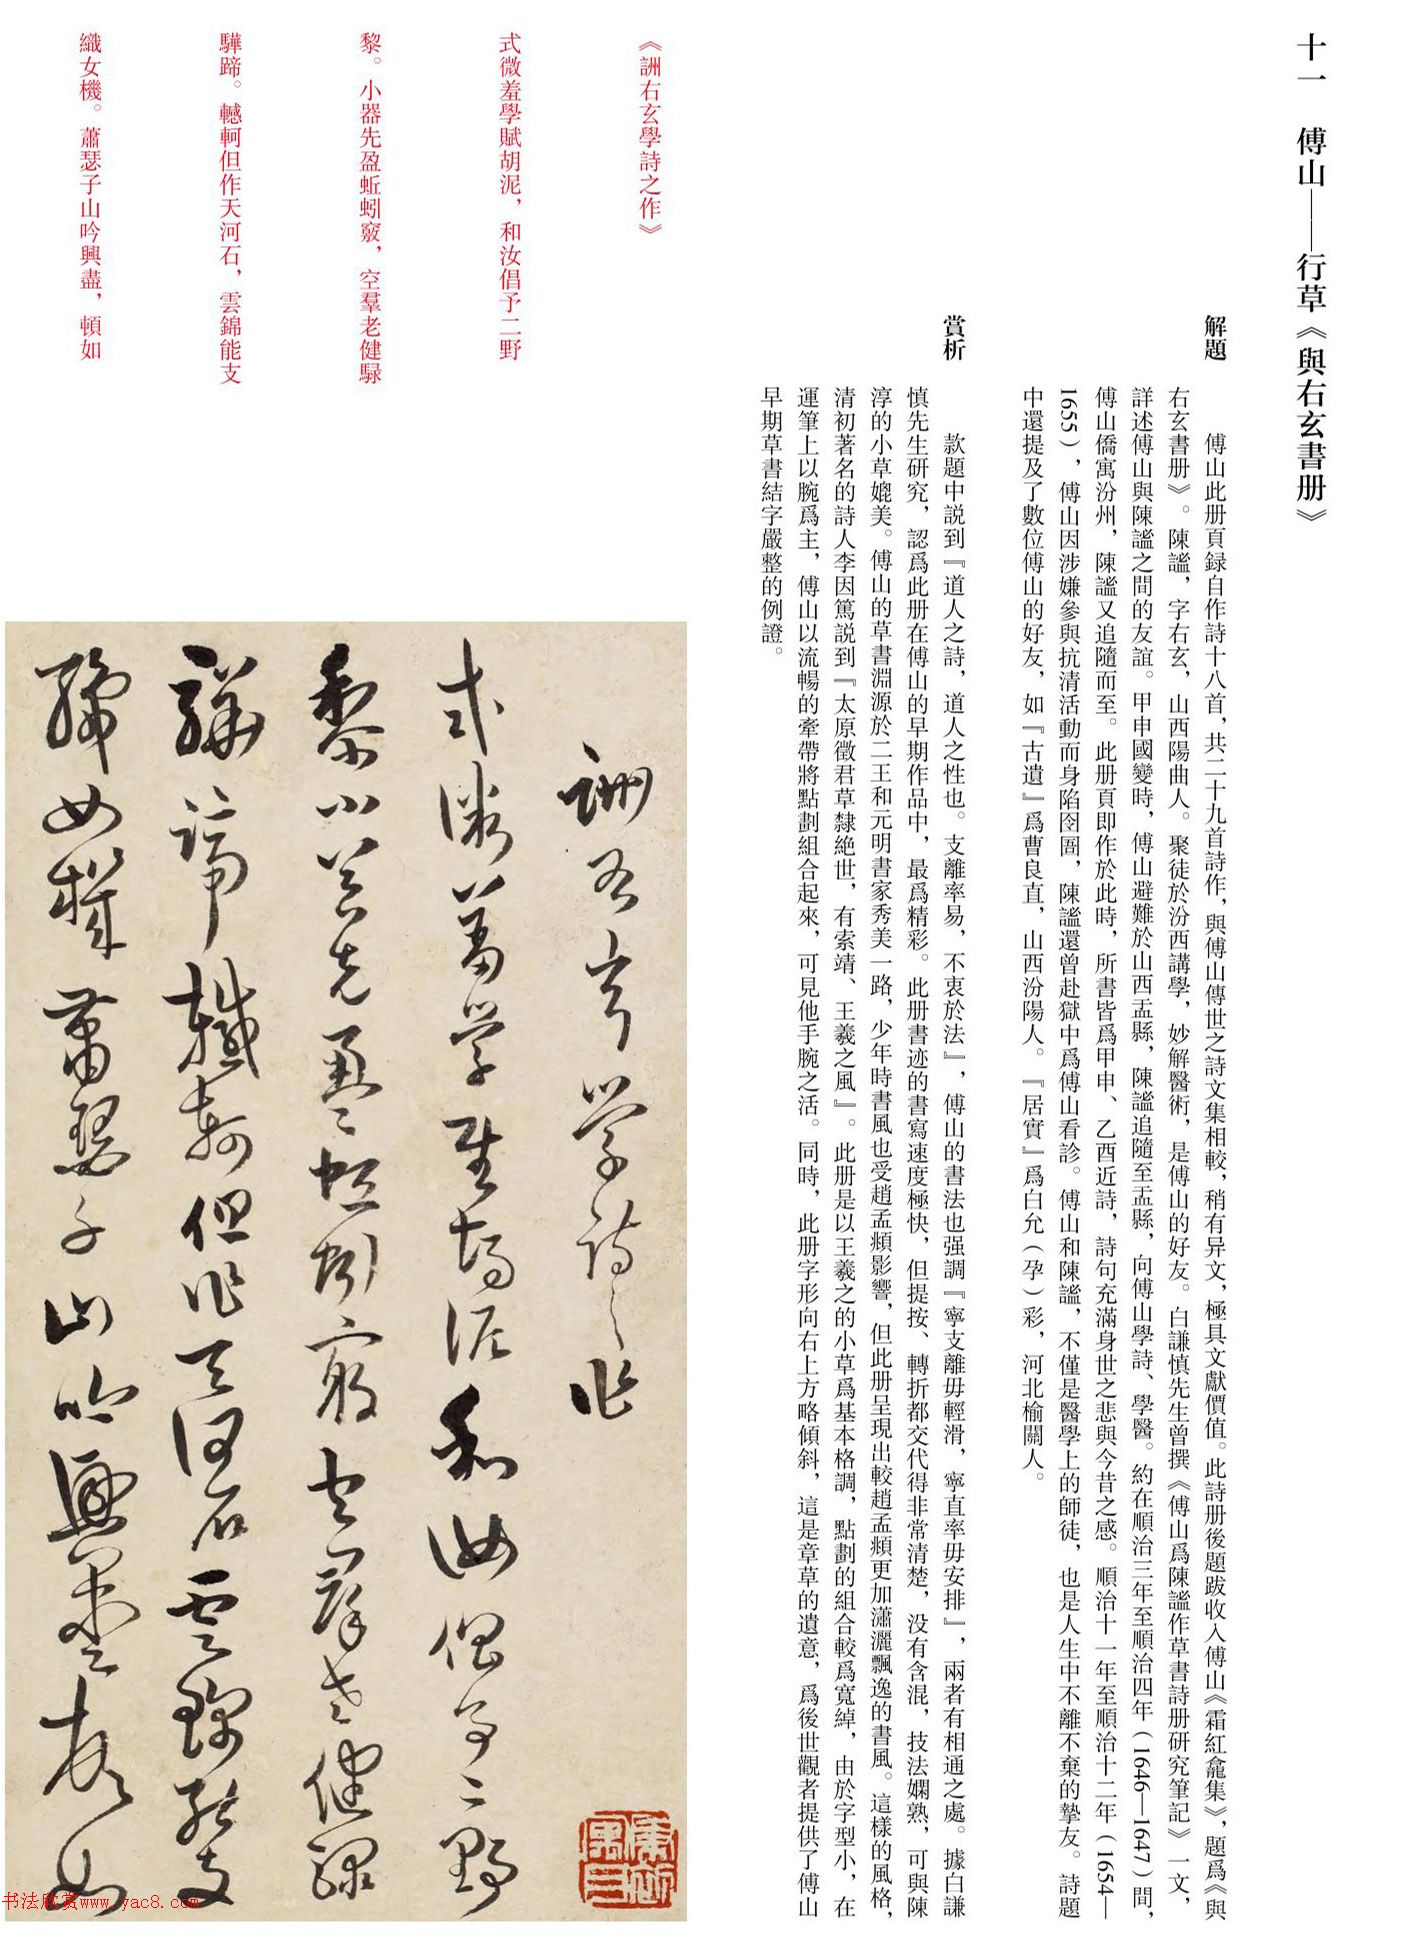 十一　傅山——行草《與右玄書册》
解題
傅山此册頁録自作詩十八首，共二十九首詩作，與傅山傳世之詩文集相較，稍有异文，極具文獻價值。此詩册後題跋收入傅山《霜紅龕集》，題爲《與
右玄書册》。陳謐，字右玄，山西陽曲人。聚徒於汾西講學，妙解醫術，是傅山的好友。白謙慎先生曾撰《傅山爲陳謐作草書詩册研究筆記》一文，
詳述傅山與陳謐之間的友誼。甲申國變時，傅山避難於山西盂縣，陳謐追隨至盂縣，向傅山學詩、學醫。約在順治三年至順治四年（1646—1647）間，
傅山僑寓汾州，陳謐又追隨而至。此册頁即作於此時，所書皆爲甲申、乙酉近詩，詩句充滿身世之悲與今昔之感。順治十一年至順治十二年（1654—
1655），傅山因涉嫌參與抗清活動而身陷囹圄，陳謐還曾赴獄中爲傅山看診。傅山和陳謐，不僅是醫學上的師徒，也是人生中不離不棄的摯友。詩題
中還提及了數位傅山的好友，如『古遺』爲曹良直，山西汾陽人。『居實』爲白允（孕）彩，河北榆關人。
賞析
款題中説到『道人之詩，道人之性也。支離率易，不衷於法』，傅山的書法也强調『寧支離毋輕滑，寧直率毋安排』，兩者有相通之處。據白謙
慎先生研究，認爲此册在傅山的早期作品中，最爲精彩。此册書迹的書寫速度極快，但提按、轉折都交代得非常清楚，没有含混，技法嫻熟，可與陳
淳的小草媲美。傅山的草書淵源於二王和元明書家秀美一路，少年時書風也受趙孟頫影響，但此册呈現出較趙孟頫更加瀟灑飄逸的書風。這樣的風格，
清初著名的詩人李因篤説到『太原徵君草隸絶世，有索靖、王羲之風』。此册是以王羲之的小草爲基本格調，點劃的組合較爲寬綽，由於字型小，在
運筆上以腕爲主，傅山以流暢的牽帶將點劃組合起來，可見他手腕之活。同時，此册字形向右上方略傾斜，這是章草的遺意，爲後世觀者提供了傅山
早期草書結字嚴整的例證。
《詶右玄學詩之作》
式微羞學賦胡泥，和汝倡予二野
黎。小器先盈蚯蚓竅，空羣老健騄
驊蹄。轗軻但作天河石，雲錦能支
織女機。蕭瑟子山吟興盡，頓如
詶右玄學詩之作
式微羞學賦胡泥和汝倡予二野
黎小器先盈蚯蚓竅空羣老健騄
驊蹄轗軻但作天河石雲錦能支
織女機蕭瑟子山吟興盡頓如
书法欣赏www.yac8.com